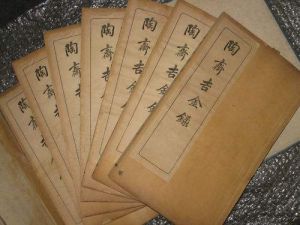 陶齋吉金錄
陶齋吉金錄
陶齋吉金
陶齋吉
陶齋吉
陶齋
陶齋